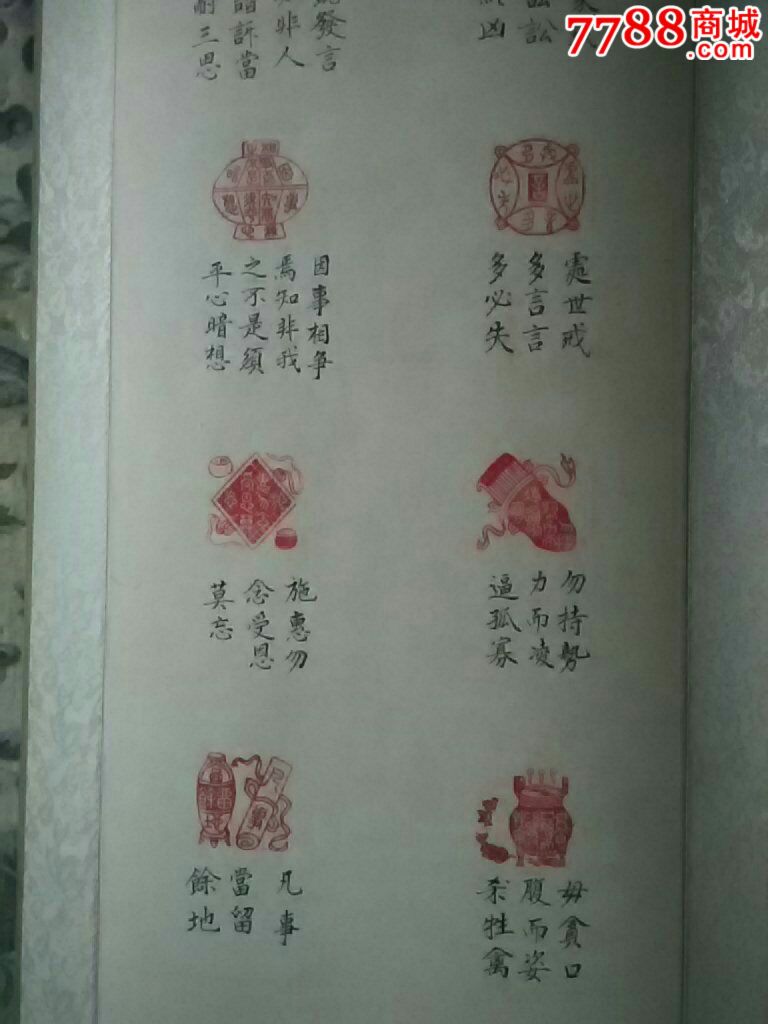 7788商城
.com
訟
凶
發言
非人
訴當
三思
處世戒
多言言
多必失
因事相爭
焉知非我
之不是須
平心暗想
勿持勢
力而凌
逼孤寡
施惠勿
念受恩
莫忘
毋貪口
腹而姿
杀牲禽
凡事
當留
餘地